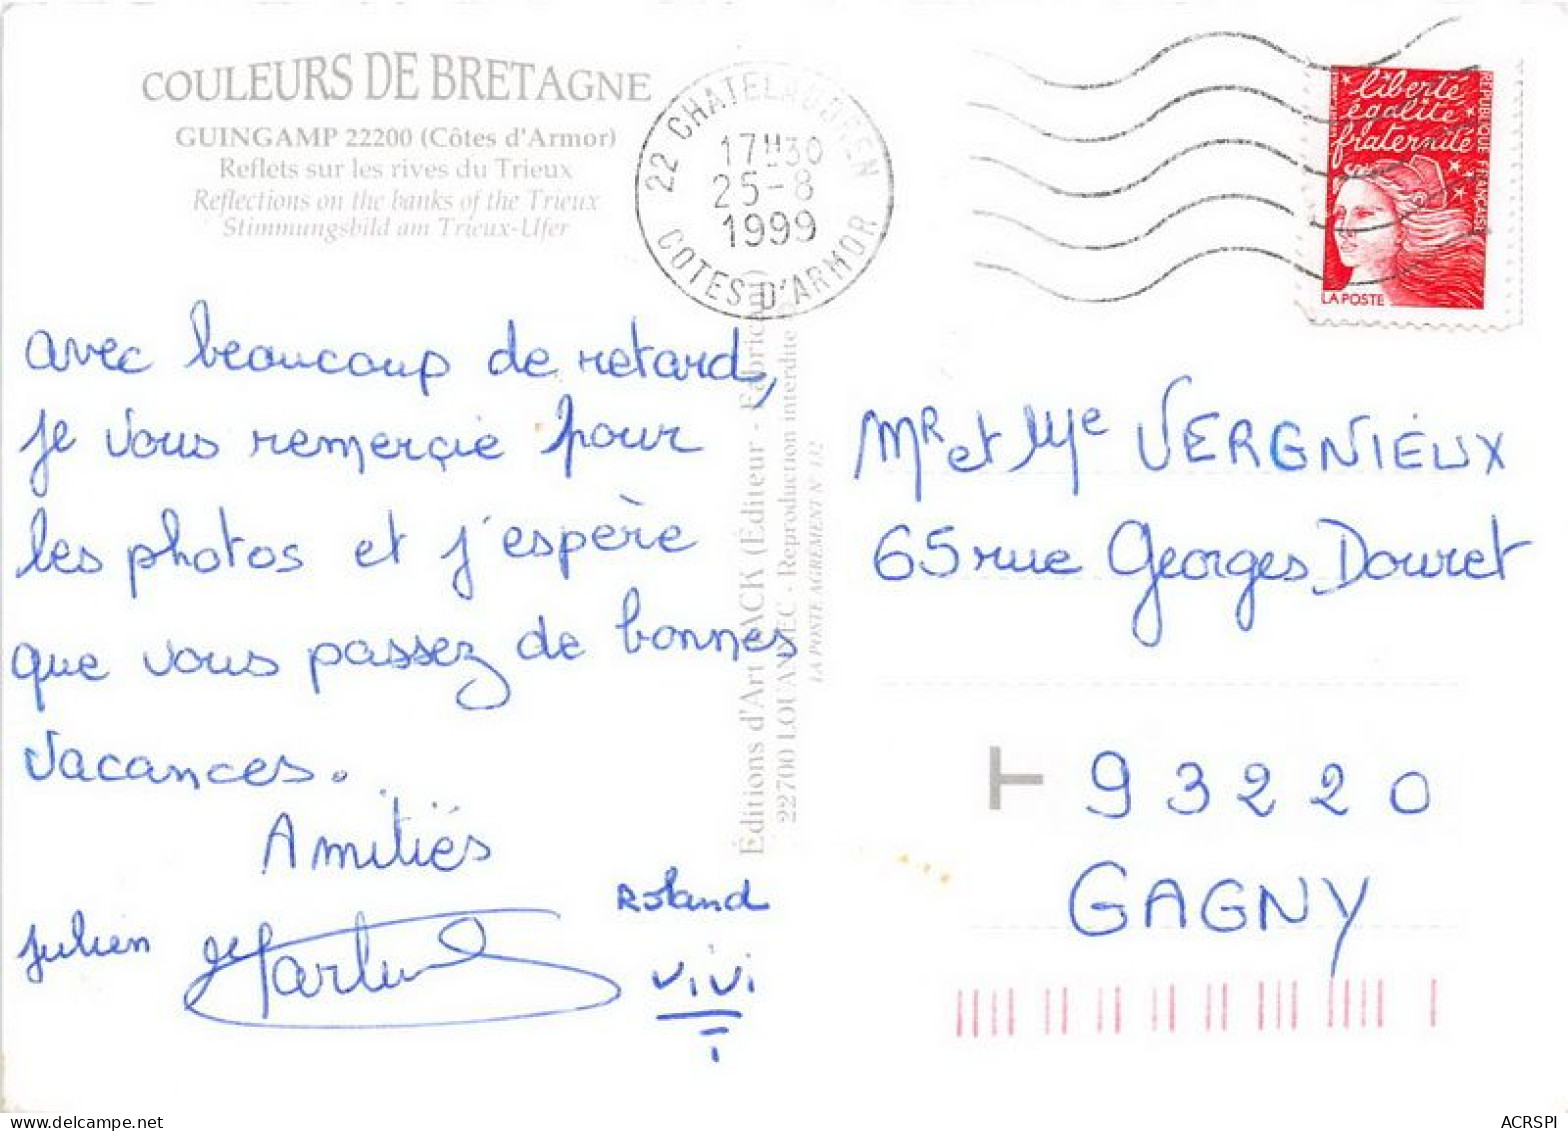 COULEURS DE BRETAGNE
GUINGAMP 22200 (Côtes d'Armor)
Reflets sur les rives du Trieux
Reflections on the banks of the Trieux
Stimmungsbild am Trieux-Ufer
22 CHATELAUDREN
17H30
25-8
1999
COTES D'ARMOR
liberté
égalité
fraternité
REPUBLIQUE FRANÇAISE
LA POSTE
avec beaucoup de retard,
je vous remerçie pour
les photos et j'espère
que vous passez de bonnes
vacances.
Amitiés
Julien
Roland
ViVi
Éditions d'Art JACK (Éditeur - Fabricant)
22700 LOUANNEC - Reproduction interdite
LA POSTE AGRÉMENT N° 132
Mr et Mme VERGNIEUX
65 rue Georges Douret
T 93220
GAGNY
ACRSPI